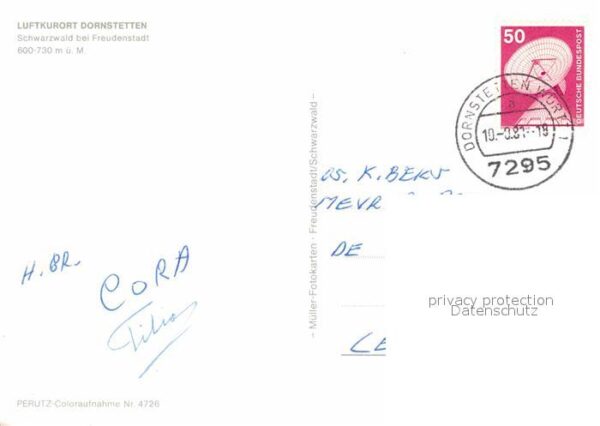 LUFTKURORT DORNSTETTEN
Schwarzwald bei Freudenstadt
600-730 m ü. M
50
DEUTSCHE BUNDESPOST
DORNSTETTEN WÜRTT 1
a
7295
– Müller-Fotokarten · Freudenstadt/Schwarzwald –
K. BERV
MEVR
DE
H. BR.
CORA
privacy protection
Datenschutz
PERUTZ-Coloraufnahme Nr. 4726